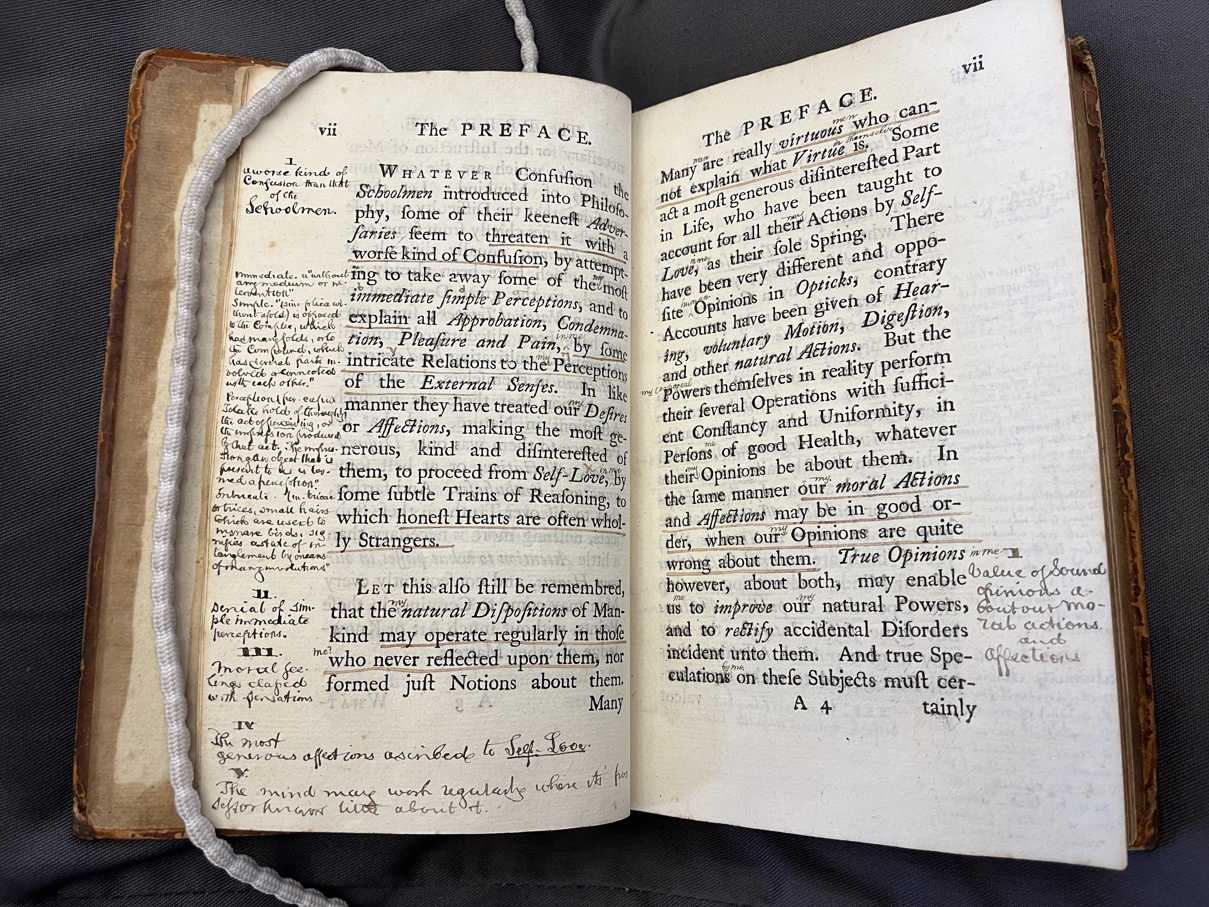 vii The PREFACE.
I
a worse kind of
Confusion than that
of the
Schoolmen.
WHATEVER Confuſion the
Schoolmen introduced into Philoſo-
phy, ſome of their keeneſt Adver-
ſaries ſeem to threaten it with a
worſe kind of Confuſion, by attempt-
ing to take away ſome of the moſt
immediate ſimple Perceptions, and to
explain all Approbation, Condemna-
tion, Pleaſure and Pain, by ſome
intricate Relations to the Perceptions
of the External Senſes. In like
manner they have treated our Deſires
or Affections, making the moſt ge-
nerous, kind and diſintereſted of
them, to proceed from Self-Love, by
ſome ſubtle Trains of Reaſoning, to
which honeſt Hearts are often whol-
ly Strangers.
Immediate. "without
any medium or in-
tervention"
to the Complex, which
has many folds, or to
the Compound, which
with each other."
take hold of thoroughly
the act of perceiving, or
the impression produced
by that act. The impres-
sion of an object that is
present to us is ter-
med a perception."
or trices, small hairs
which are used to
ensnare birds. sig-
nifies a state of en-
tanglement by means
of many involutions"
II.
Denial of sim-
ple immediate
perceptions.
III.
Moral fee-
lings classed
with sensations
LET this alſo ſtill be remembred,
that the natural Diſpoſitions of Man-
kind may operate regularly in thoſe
who never reflected upon them, nor
formed juſt Notions about them.
Many
IV
The most
generous affections ascribed to Self-Love.
V
The mind may work regularly where its pos
sessor knows little about it.
The PREFACE. vii
Many are really virtuous who can-
not explain what Virtue is. Some
act a moſt generous diſintereſted Part
in Life, who have been taught to
account for all their Actions by Self-
Love, as their ſole Spring. There
have been very different and oppo-
ſite Opinions in Opticks, contrary
Accounts have been given of Hear-
ing, voluntary Motion, Digeſtion,
and other natural Actions. But the
Powers themſelves in reality perform
their ſeveral Operations with ſuffici-
ent Conſtancy and Uniformity, in
Perſons of good Health, whatever
their Opinions be about them. In
the ſame manner our moral Actions
and Affections may be in good or-
der, when our Opinions are quite
wrong about them. True Opinions
however, about both, may enable
us to improve our natural Powers,
and to rectify accidental Diſorders
incident unto them. And true Spe-
culations on theſe Subjects muſt cer-
A 4 tainly
I
Value of Sound
opinions a-
bout our mo-
ral actions
and
affections